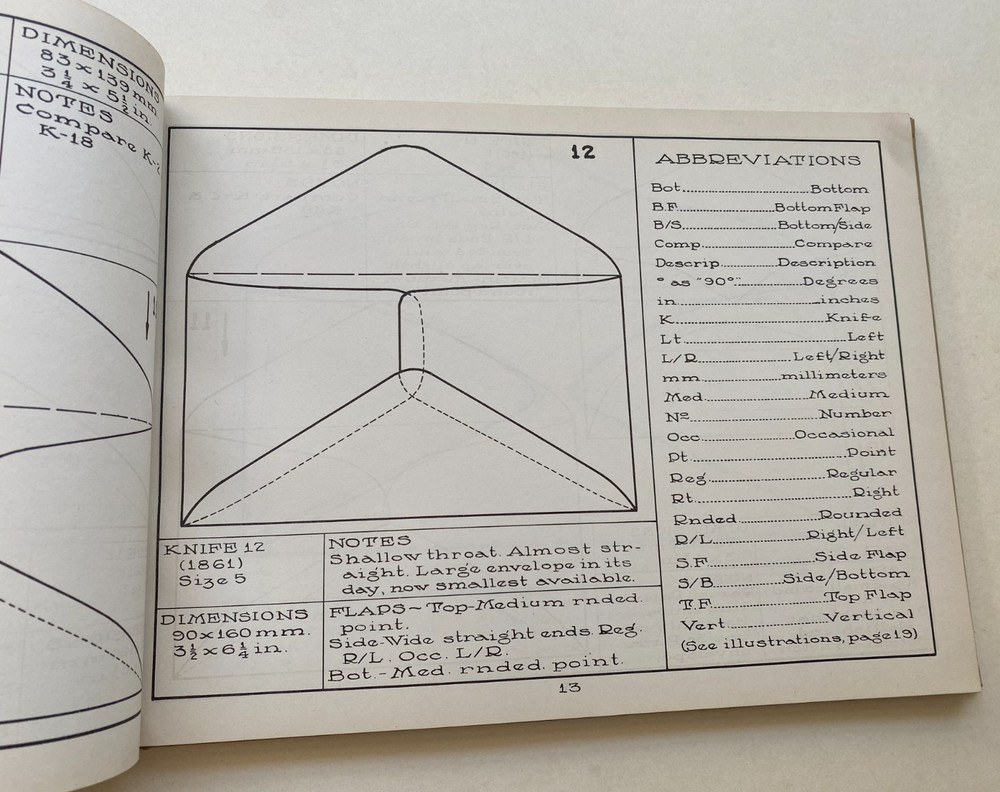 DIMENSIONS
83 x 139 mm
3 1/4 x 5 1/2 in.
NOTES
Compare K-
K-18
12
KNIFE 12
(1861)
Size 5
DIMENSIONS
90x160 mm.
3 1/2 x 6 1/4 in.
NOTES
Shallow throat. Almost str-
aight. Large envelope in its
day, now smallest available.
FLAPS~Top-Medium rnded.
point.
Side-Wide straight ends. Reg.
R/L. Occ. L/R.
Bot.-Med. rnded. point.
ABBREVIATIONS
Bot.......Bottom
B.F.......Bottom Flap
B/S.......Bottom/Side
Comp.......Compare
Descrip.......Description
° as "90°".......Degrees
in.......inches
K.......Knife
Lt.......Left
L/R.......Left/Right
mm.......millimeters
Med.......Medium
Nº.......Number
Occ.......Occasional
Pt.......Point
Reg.......Regular
Rt.......Right
Rnded.......Rounded
R/L.......Right/Left
S.F.......Side Flap
S/B.......Side/Bottom
T.F.......Top Flap
Vert.......Vertical
(See illustrations, page 19)
13